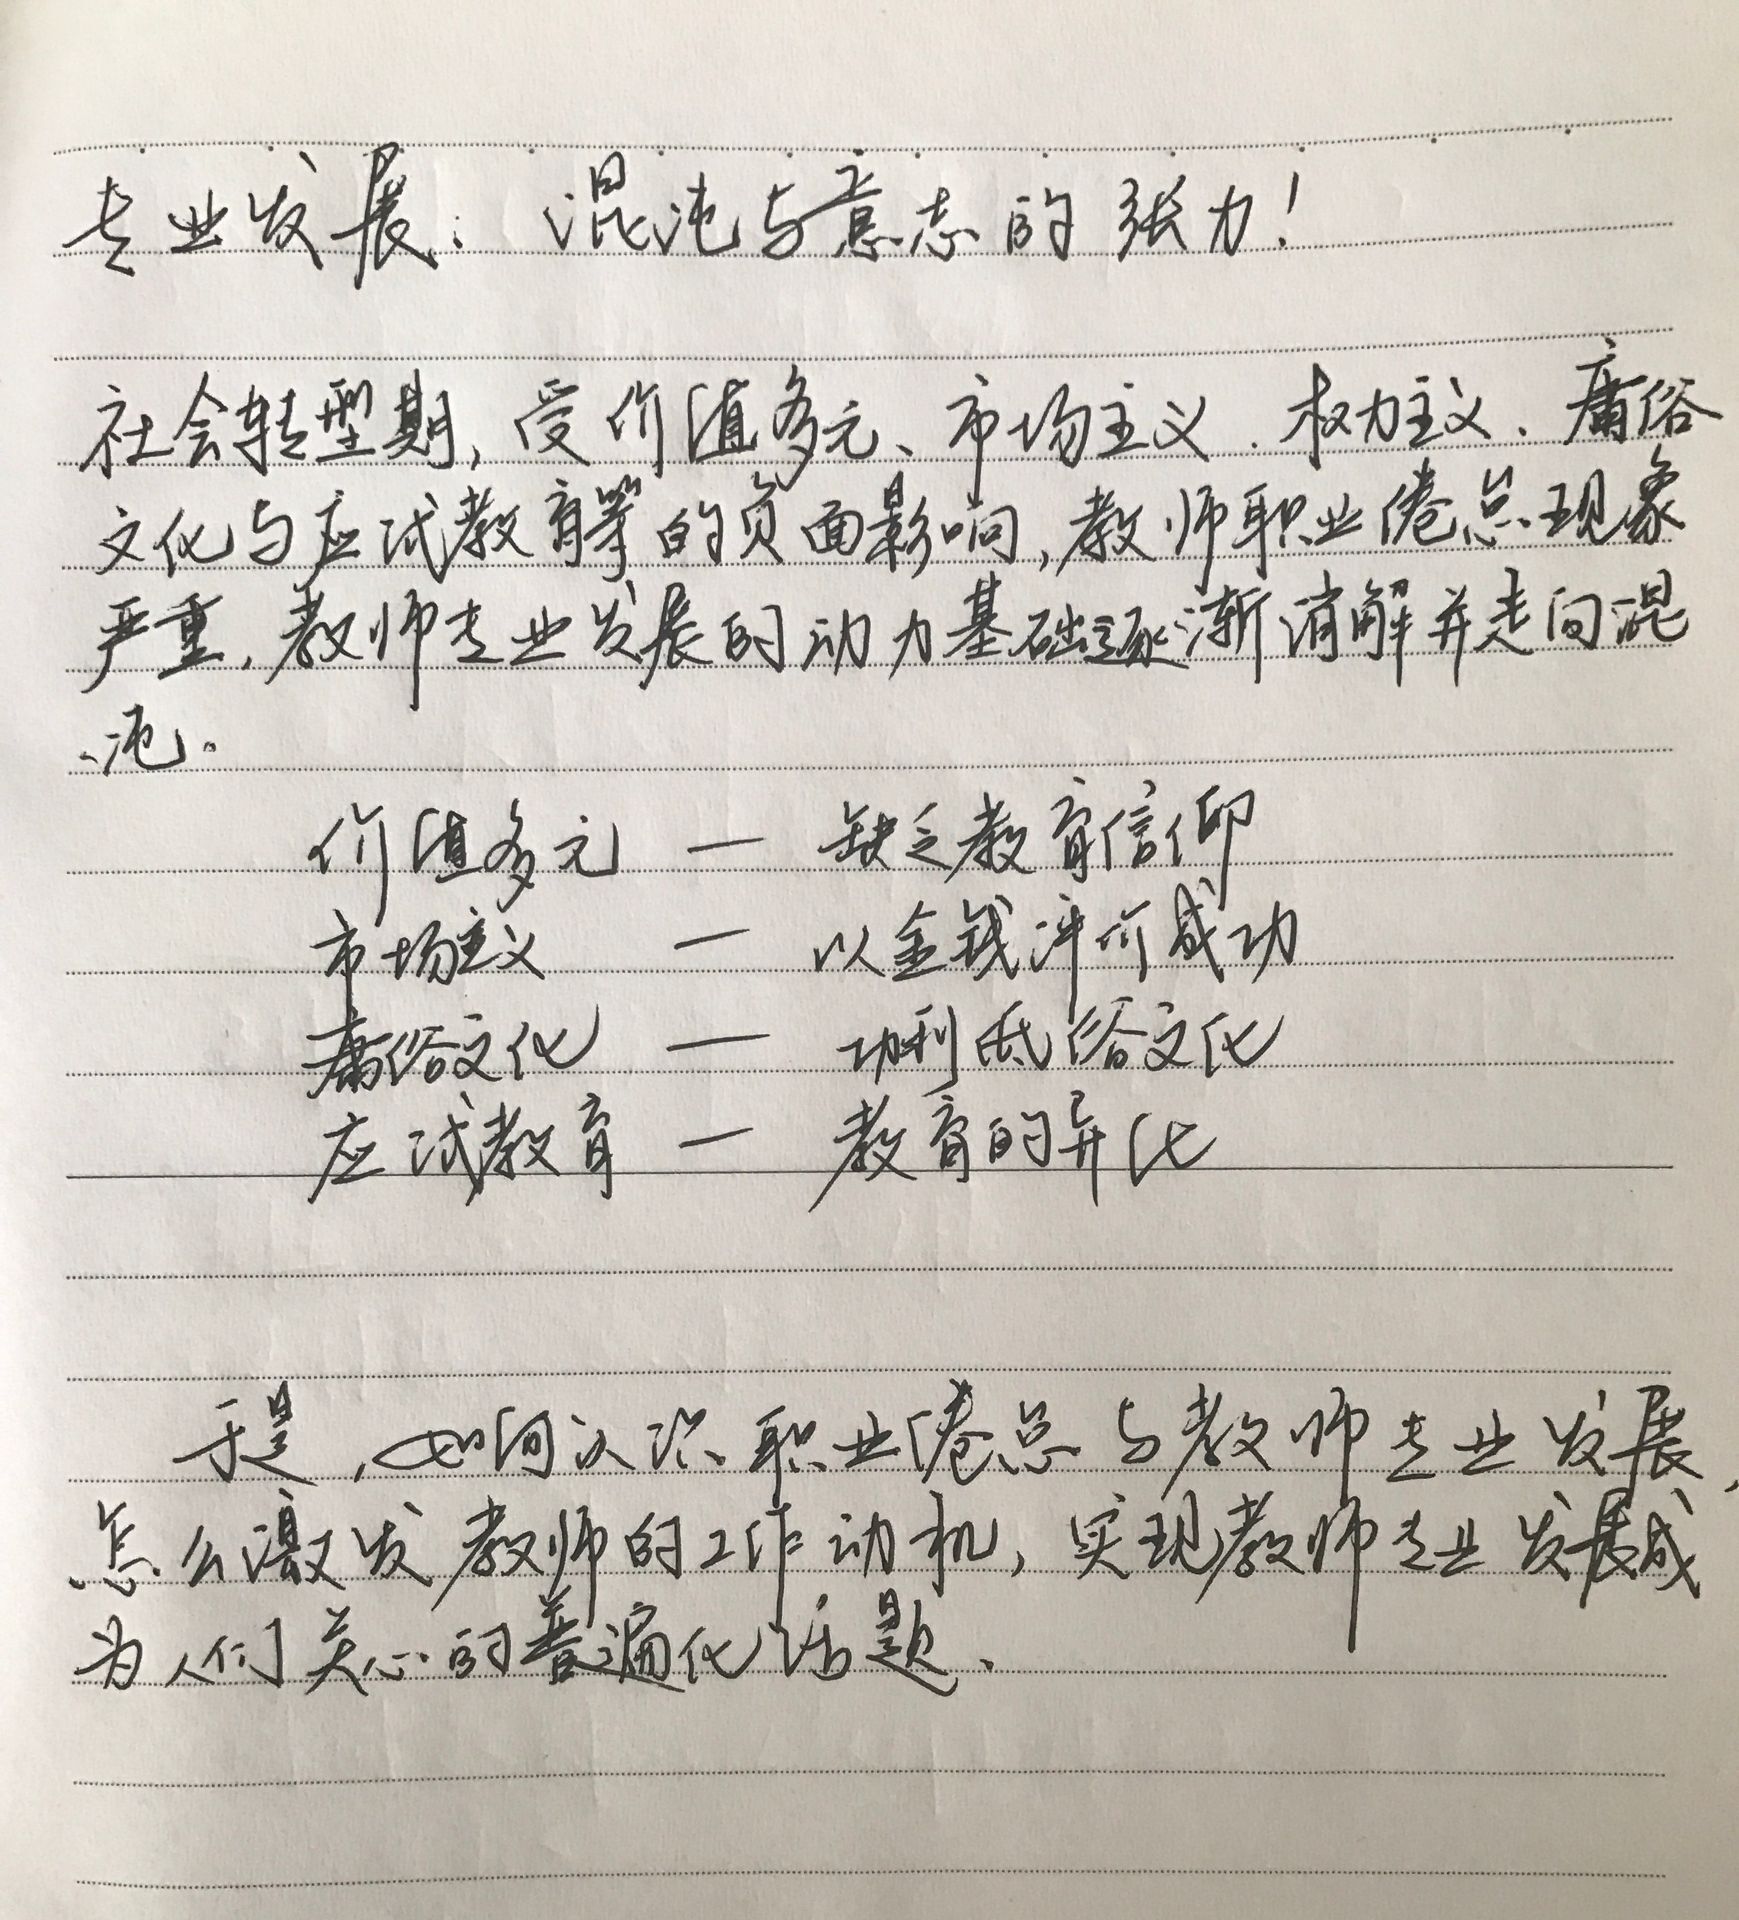 专业发展：混沌与意志的张力！
社会转型期，受价值多元、市场主义、权力主义、庸俗
文化与应试教育等的负面影响，教师职业倦怠现象
严重，教师专业发展的动力基础逐渐消解并走向混
沌。
价值多元 — 缺乏教育信仰
市场主义 — 以金钱评价成功
庸俗文化 — 功利低俗文化
应试教育 — 教育的异化
于是，如何认识职业倦怠与教师专业发展，
怎么激发教师的工作动机，实现教师专业发展成
为人们关心的普遍化话题、